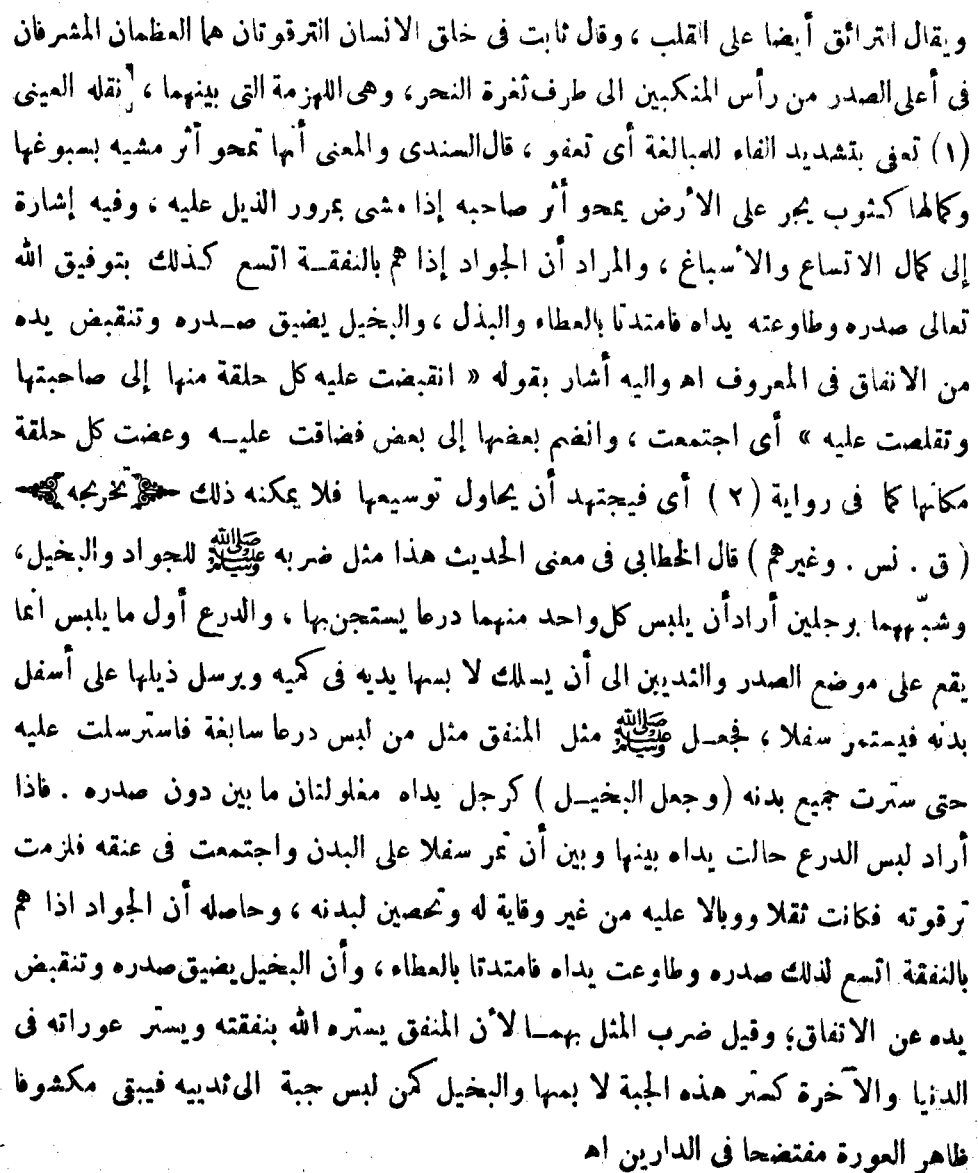 ويقال الترائق أيضا على القلب ، وقال ثابت فى خلق الانسان الترقوتان هما العظمان المشرفان
فى أعلى الصدر من رأس المنكبين الى طرف ثغرة النحر، وهى اللهزمة التى بينهما ، نقله العينى
(١) تعفى بتشديد الفاء للمبالغة أى تعفو ، قال السندى والمعنى أنها تمحو أثر مشيه بسبوغها
وكمالها كثوب يجر على الأرض يمحو أثر صاحبه إذا مشى بمرور الذيل عليه ، وفيه إشارة
إلى كمال الاتساع والأسباغ ، والمراد أن الجواد إذا هم بالنفقــة اتسع كـذلك بتوفيق الله
تعالى صدره وطاوعته يداه فامتدتا بالعطاء والبذل ، والبخيل يضيق صــدره وتنقبض يده
من الانفاق فى المعروف اه واليه أشار بقوله « انقبضت عليه كل حلقة منها إلى صاحبتها
وتقلصت عليه » أى اجتمعت ، وانضم بعضها إلى بعض فضاقت عليــه وعضت كل حلقة
مكانها كما فى رواية (٢) أى فيجتهد أن يحاول توسيعها فلا يمكنه ذلك ﴿تخريجه﴾
(ق . نس . وغيرهم) قال الخطابى فى معنى الحديث هذا مثل ضربه ﷺ للجواد والبخيل،
وشبّههما برجلين أرادأن يلبس كل واحد منهما درعا يستجن بها ، والدرع أول ما يلبس انما
يقع على موضع الصدر والثديين الى أن يسلك لا بسها يديه فى كميه ويرسل ذيلها على أسفل
بدنه فيستمر سفلا ، فجعــل ﷺ مثل المنفق مثل من لبس درعا سابغة فاسترسلت عليه
حتى سترت جميع بدنه (وجعل البخيــل) كرجل يداه مغلولتان ما بين دون صدره . فاذا
أراد لبس الدرع حالت يداه بينها وبين أن تمر سفلا على البدن واجتمعت فى عنقه فلزمت
ترقوته فكانت ثقلا ووبالا عليه من غير وقاية له وتحصين لبدنه ، وحاصله أن الجواد اذا هم
بالنفقة اتسع لذلك صدره وطاوعت يداه فامتدتا بالعطاء ، وأن البخيل يضيق صدره وتنقبض
يده عن الاتفاق؛ وقيل ضرب المثل بهمــا لأن المنفق يستره الله بنفقته ويستر عوراته فى
الدنيا والآخرة كستر هذه الجبة لا بسها والبخيل كمن لبس جبة الى ثدييه فيبقى مكشوفا
ظاهر العورة مفتضحا فى الدارين اه